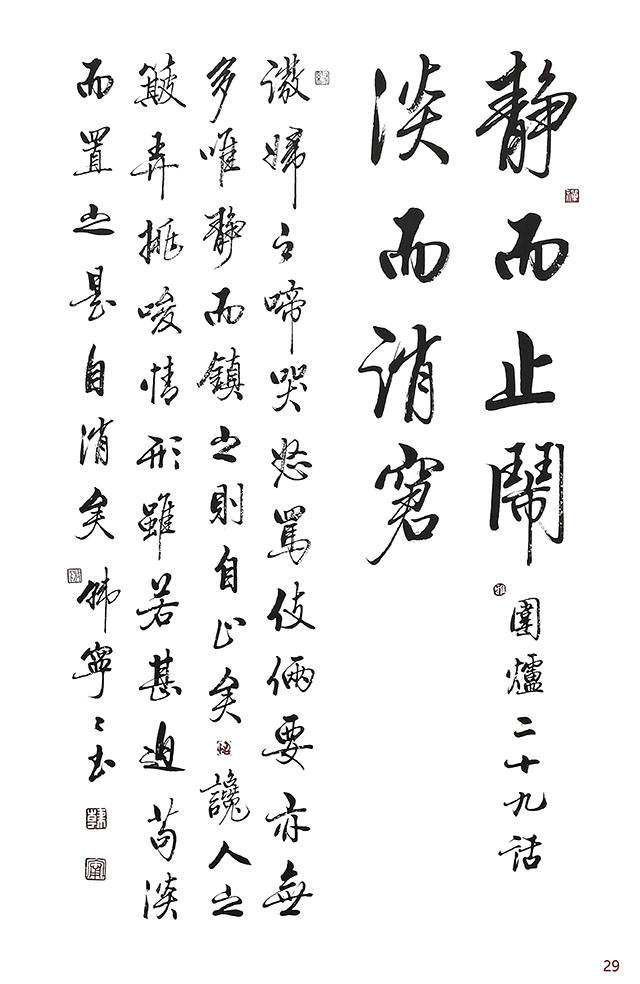 靜而止鬧 圍爐二十九話
淡而消窘
潑婦之啼哭怒罵伎倆要亦無
多唯靜而鎮之則自止矣讒人之
簸弄挑唆情形雖若甚迫苟淡
而置之是自消矣 韩寧〻书
29